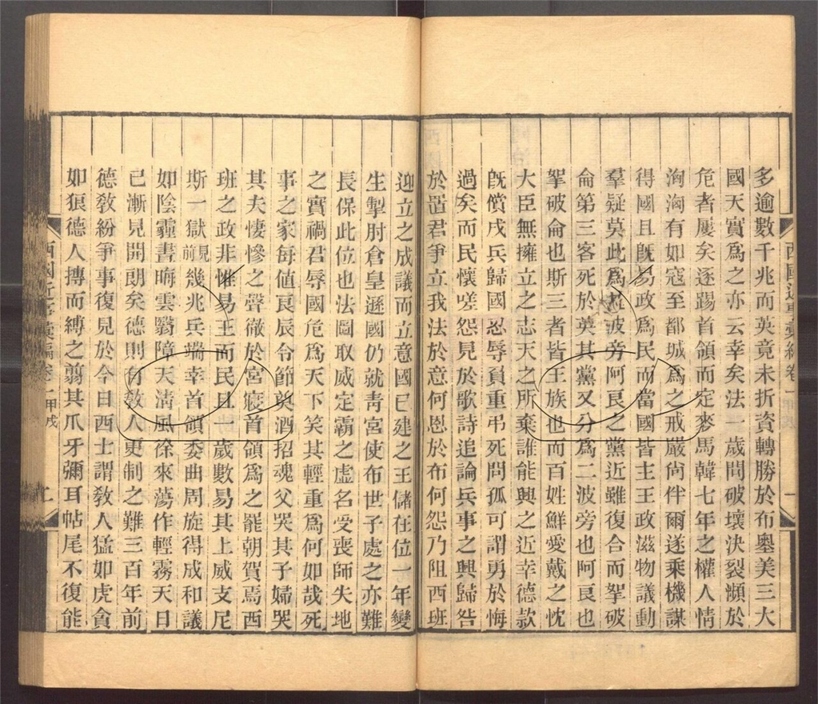 多逾數千兆而英竟未折資轉勝於布墨美三大
國天實爲之亦云幸矣法一歲間破壞決裂瀕於
危者屢矣逐踢首領而定麥馬韓七年之權人情
洶洶有如寇至都城爲之戒嚴尙伴爾遂乘機謀
得國且旣易政爲民而當國皆主王政滋物議動
羣疑莫此爲甚波旁阿良之黨近雖復合而挐破
侖第三客死於英其黨又分爲二波旁也阿良也
挐破侖也斯三者皆王族也而百姓鮮愛戴之忱
大臣無擁立之志天之所棄誰能興之近幸德款
旣償戍兵歸國忍辱負重弔死問孤可謂勇於悔
過矣而民懷嗟怨見於歌詩追論兵事之興歸咎
於置君爭立我法於意何恩於布何怨乃阻西班
西國近事彙編 卷一 甲戌
一
迎立之成議而立意國已建之王儲在位一年變
生掣肘倉皇遜國仍就靑宮使布世子處之亦難
長保此位也法圖取威定霸之虛名受喪師失地
之實禍君辱國危爲天下笑其輕重爲何如哉死
事之家每値良辰令節奠酒招魂父哭其子婦哭
其夫悽慘之聲徹於宮寢首領爲之罷朝賀焉西
班之政非惟易王而民且一歲數易其上威支尼
斯一獄見前幾兆兵端幸首領委曲周旋得成和議
如陰霾晝晦雲翳障天淸風徐來蕩作輕霧天日
已漸見開朗矣德則有敎人更制之難三百年前
德敎紛爭事復見於今日西士謂敎人猛如虎貪
如狼德人搏而縛之翦其爪牙彌耳帖尾不復能
西國近事彙編 卷一 甲戌